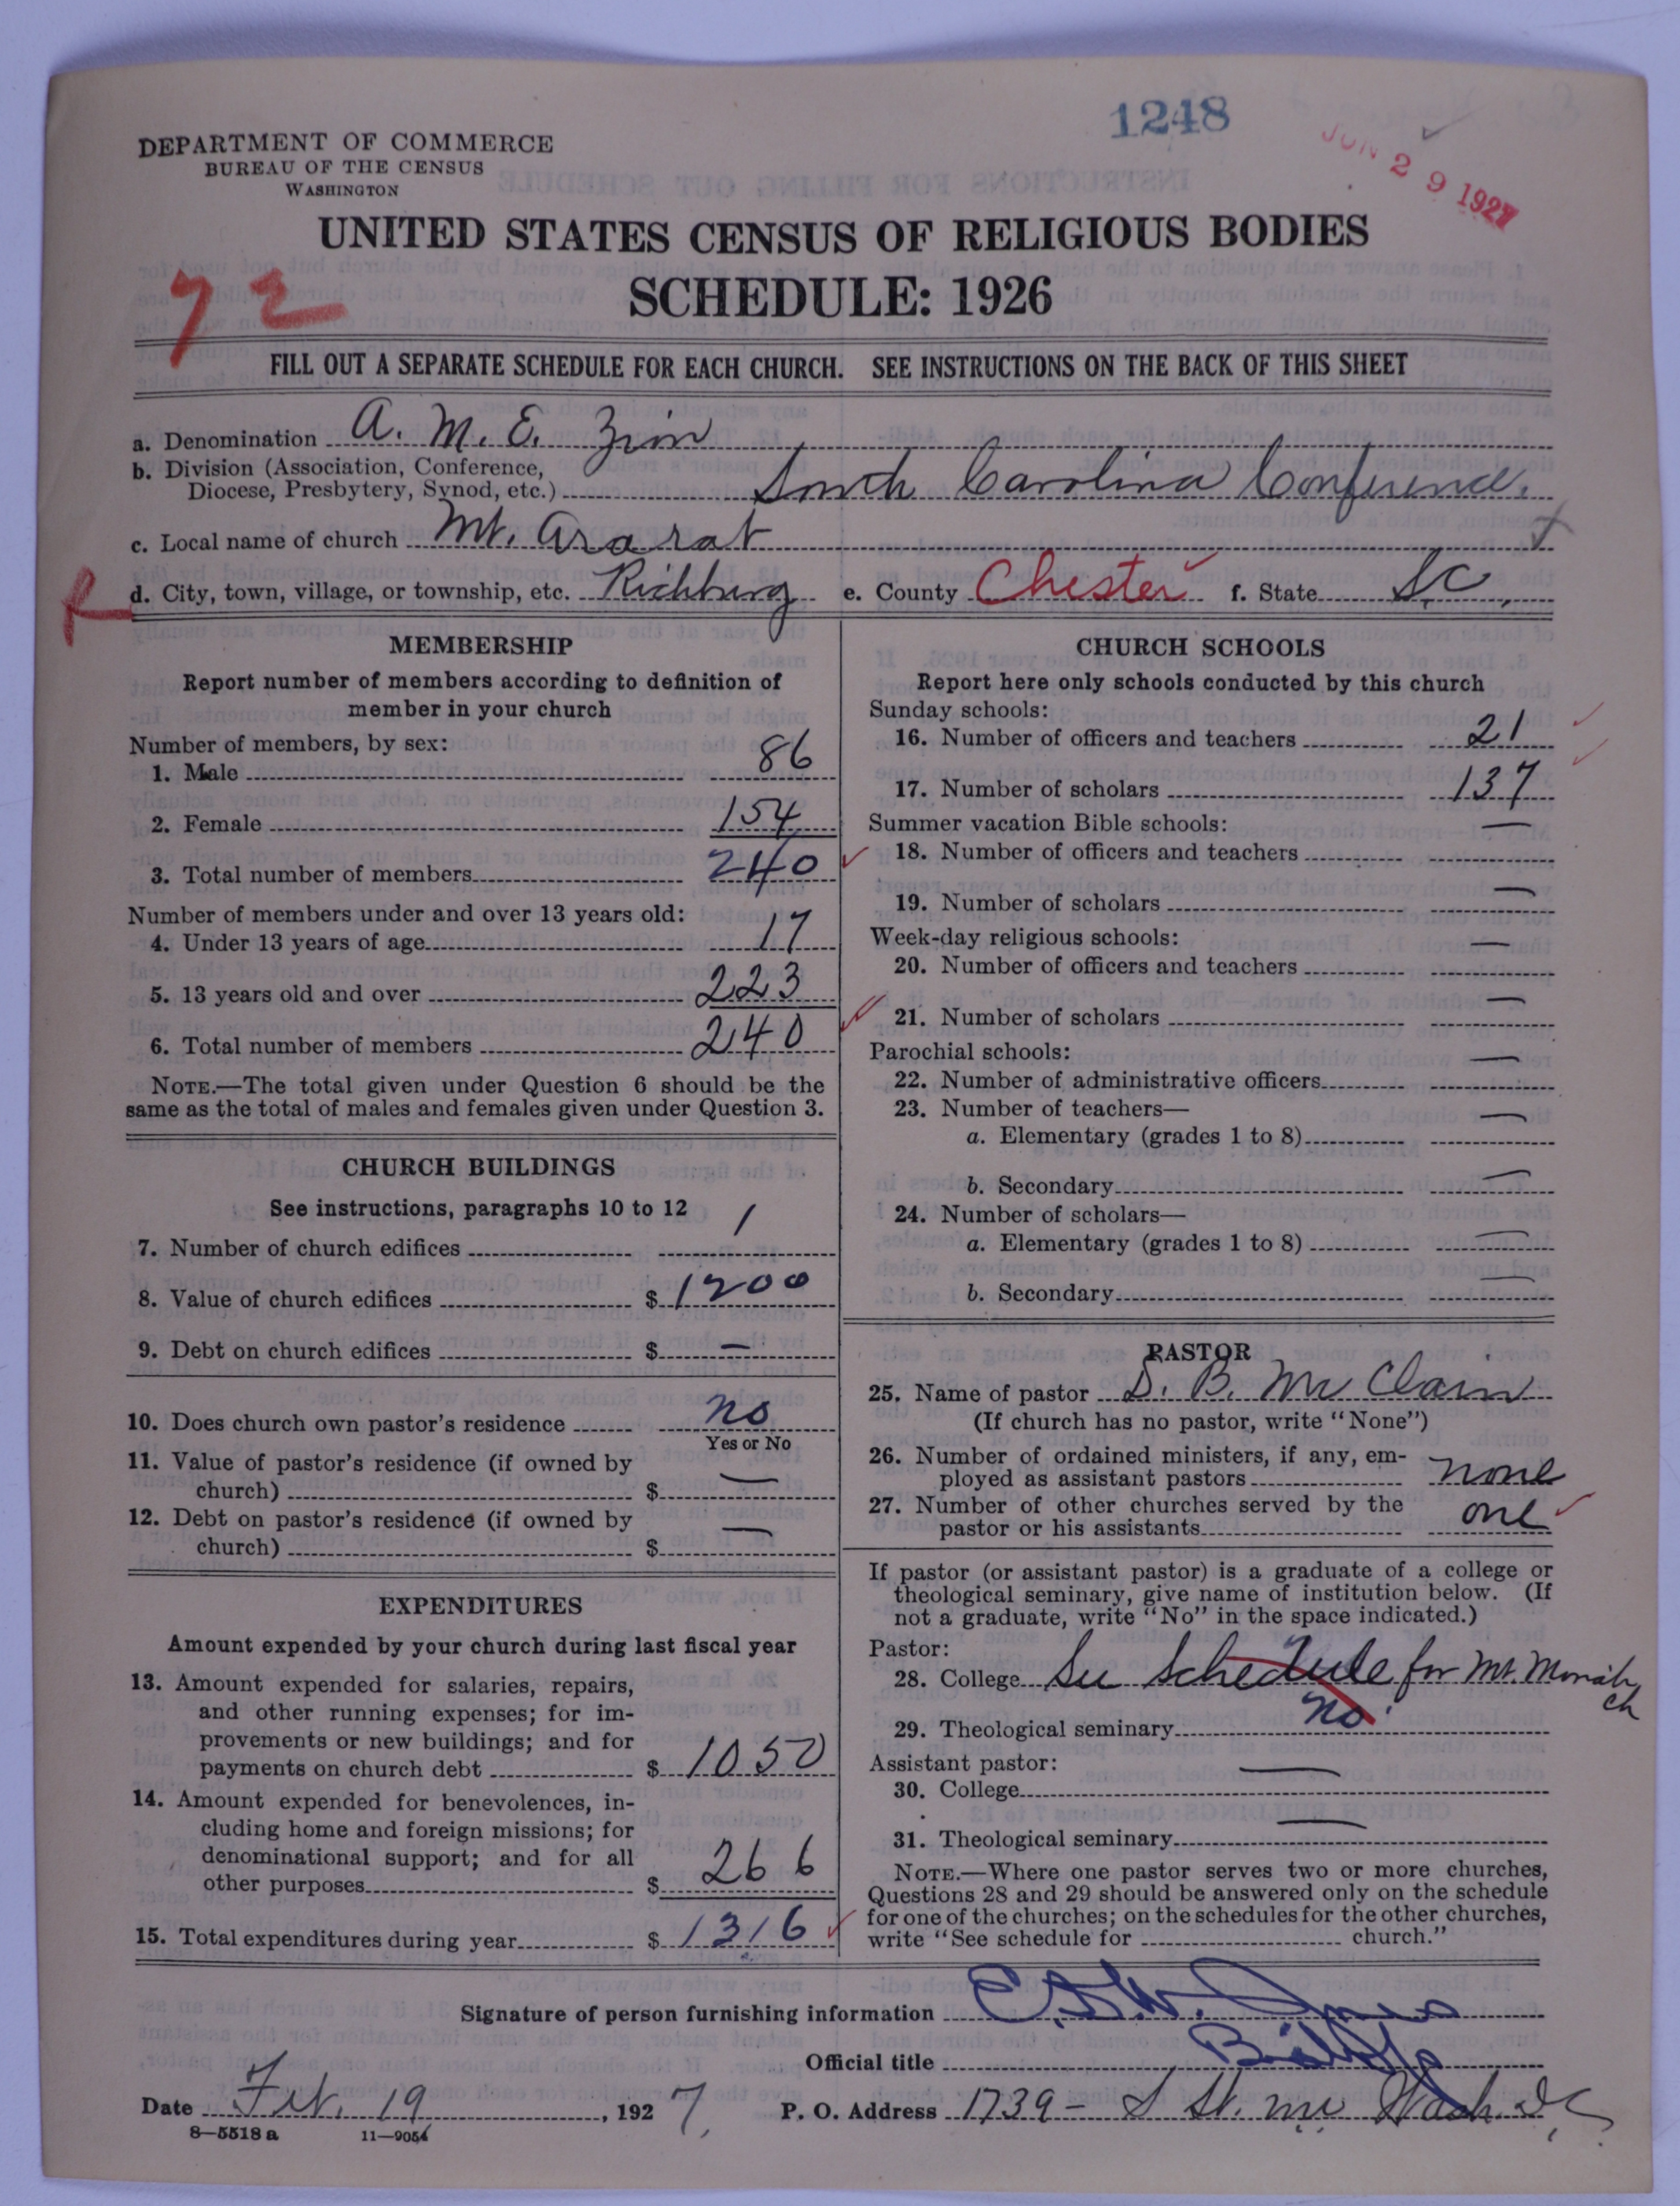 1248
JUN 29 1927
DEPARTMENT OF COMMERCE
BUREAU OF THE CENSUS
WASHINGTON
UNITED STATES CENSUS OF RELIGIOUS BODIES
SCHEDULE: 1926
72
FILL OUT A SEPARATE SCHEDULE FOR EACH CHURCH. SEE INSTRUCTIONS ON THE BACK OF THIS SHEET
a. Denomination A. M. E. Zion
b. Division (Association, Conference,
Diocese, Presbytery, Synod, etc.) South Carolina Conference.
c. Local name of church Mt. Ararat
d. City, town, village, or township, etc. Richburg e. County Chester f. State S.C.
MEMBERSHIP
Report number of members according to definition of
member in your church
Number of members, by sex:
1. Male 86
2. Female 154
3. Total number of members 240
Number of members under and over 13 years old:
4. Under 13 years of age 17
5. 13 years old and over 223
6. Total number of members 240
NOTE.—The total given under Question 6 should be the
same as the total of males and females given under Question 3.
CHURCH BUILDINGS
See instructions, paragraphs 10 to 12
7. Number of church edifices 1
8. Value of church edifices $ 1200
9. Debt on church edifices $ —
10. Does church own pastor's residence no
Yes or No
11. Value of pastor's residence (if owned by
church) $ —
12. Debt on pastor's residence (if owned by
church) $ —
EXPENDITURES
Amount expended by your church during last fiscal year
13. Amount expended for salaries, repairs,
and other running expenses; for im-
provements or new buildings; and for
payments on church debt $ 1050
14. Amount expended for benevolences, in-
cluding home and foreign missions; for
denominational support; and for all
other purposes $ 266
15. Total expenditures during year $ 1316
CHURCH SCHOOLS
Report here only schools conducted by this church
Sunday schools:
16. Number of officers and teachers 21
17. Number of scholars 137
Summer vacation Bible schools:
18. Number of officers and teachers —
19. Number of scholars —
Week-day religious schools:
20. Number of officers and teachers —
21. Number of scholars —
Parochial schools:
22. Number of administrative officers —
23. Number of teachers—
a. Elementary (grades 1 to 8) —
b. Secondary —
24. Number of scholars—
a. Elementary (grades 1 to 8) —
b. Secondary —
PASTOR
25. Name of pastor S. B. Mc Clain
(If church has no pastor, write "None")
26. Number of ordained ministers, if any, em-
ployed as assistant pastors none
27. Number of other churches served by the
pastor or his assistants one
If pastor (or assistant pastor) is a graduate of a college or
theological seminary, give name of institution below. (If
not a graduate, write "No" in the space indicated.)
Pastor:
28. College See Schedule for Mt. Moriah
ch
29. Theological seminary no
Assistant pastor:
30. College —
31. Theological seminary —
NOTE.—Where one pastor serves two or more churches,
Questions 28 and 29 should be answered only on the schedule
for one of the churches; on the schedules for the other churches,
write "See schedule for church."
Signature of person furnishing information
Official title Bishop
Date Feb. 19, 1927. P. O. Address 1739 - S St. nw Wash. D.C.
8—5518 a 11—9054